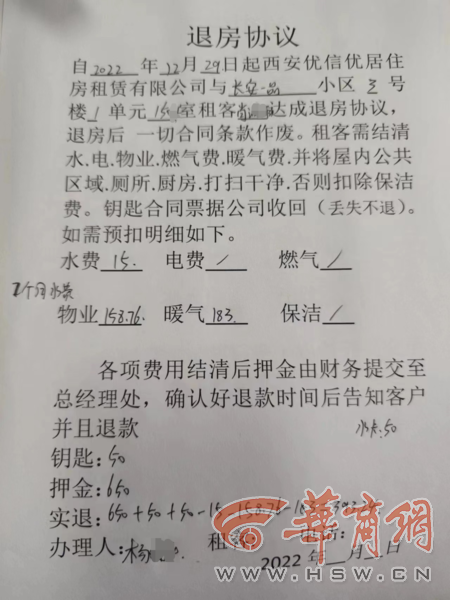 退房协议
自2022 年12月29日起西安优信优居住
房租赁有限公司与长安一品 小区 3 号
楼 1 单元 15 室租客 达成退房协议，
退房后 一切合同条款作废。租客需结清
水.电.物业.燃气费.暖气费.并将屋内公共
区域.厕所.厨房.打扫干净.否则扣除保洁
费。钥匙合同票据公司收回（丢失不退）。
如需预扣明细如下。
水费 15. 电费 / 燃气 /
个月
物业 158.76. 暖气 183. 保洁 /
各项费用结清后押金由财务提交至
总经理处，确认好退款时间后告知客户
并且退款
水卡:50
钥匙:50
押金:650
实退:650+50+50-15-158.76-
办理人:杨 租
2022 年 月 日
华商网
WWW.HSW.CN